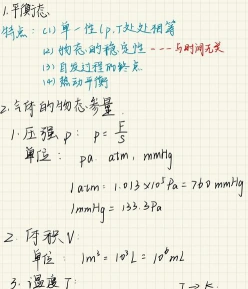 1.平衡态
特点：(1)单一性(p.T处处相等
(2)物态的稳定性---与时间无关
(3)自发过程的终点
(4)热动平衡
2.气体的物态参量
1.压强p：p=F/S
单位：pa atm, mmHg
1atm=1.013×10⁵Pa=760mmHg
1mmHg=133.3Pa
2.体积V：
单位：1m³=10³L=10⁶mL
3.温度T：